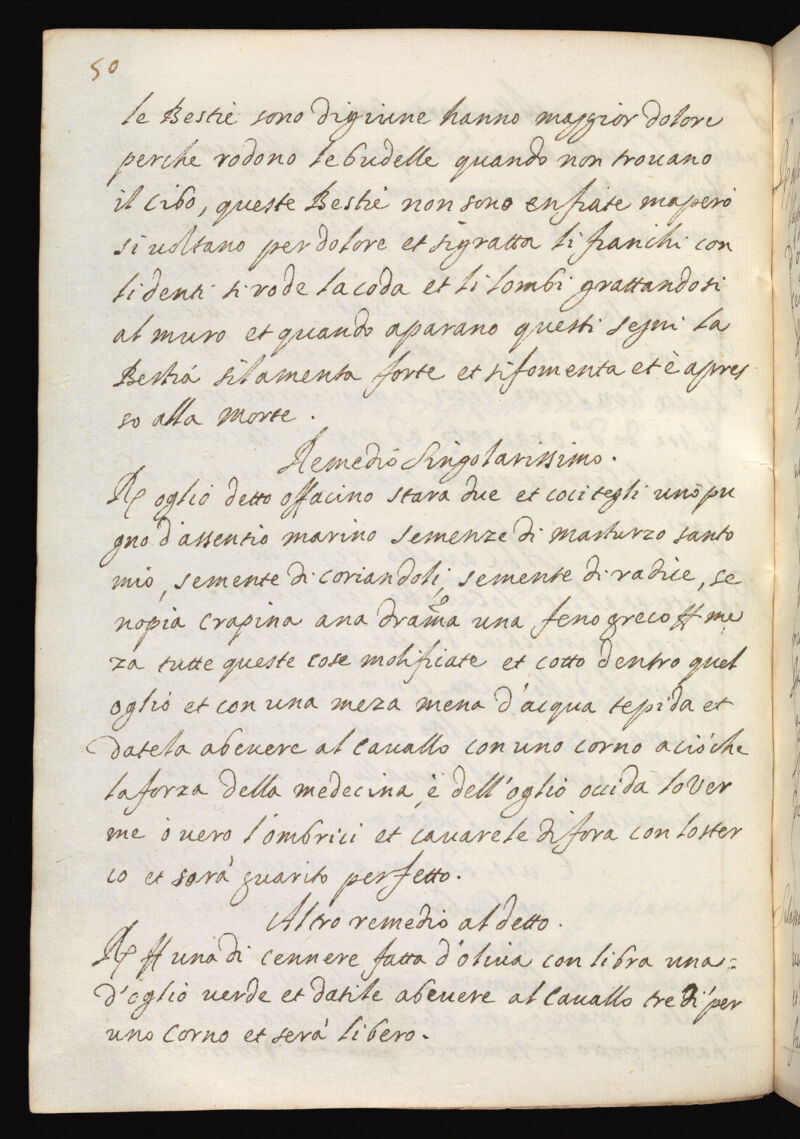 50
le Bestie sono digiune hanno maggior dolore
perche rodono le budelle quando non trouano
il cibo, queste Bestie non sono enfiate ma però
si uoltano per dolore et si gratta li fianchi con
li denti si rode la coda et li lombi grattandosi
al muro et quando aparano questi segni la
Bestia si lamenta forte et si fomenta et è apres
so alla morte.
Remedio Singolarissimo.
℞ oglio detto offacino stara due et cocitegli uno pu
gno d'assentio marino semenze di masturzo santo
mio, semente di coriandoli, semente di radice, se
nopia crapina ana drama una fenogreco ℔ me
za tutte queste cose molificate et cotto dentro quel
oglio et con una meza mena d'acqua tepida et
datela a beuere al Cauallo con uno corno acióche
la forza della medecina è dell'oglio occida lo Ver
me ò uero l'ombrici et cauarele di fora con lo ster
co et sarà guarito perfetto.
Altro remedio al detto.
℞ ℔ una di cennere fatta d'oliua con libra una=
d'oglio uerde et datile a beuere al Cauallo tre dì per
uno Corno et serà libero.